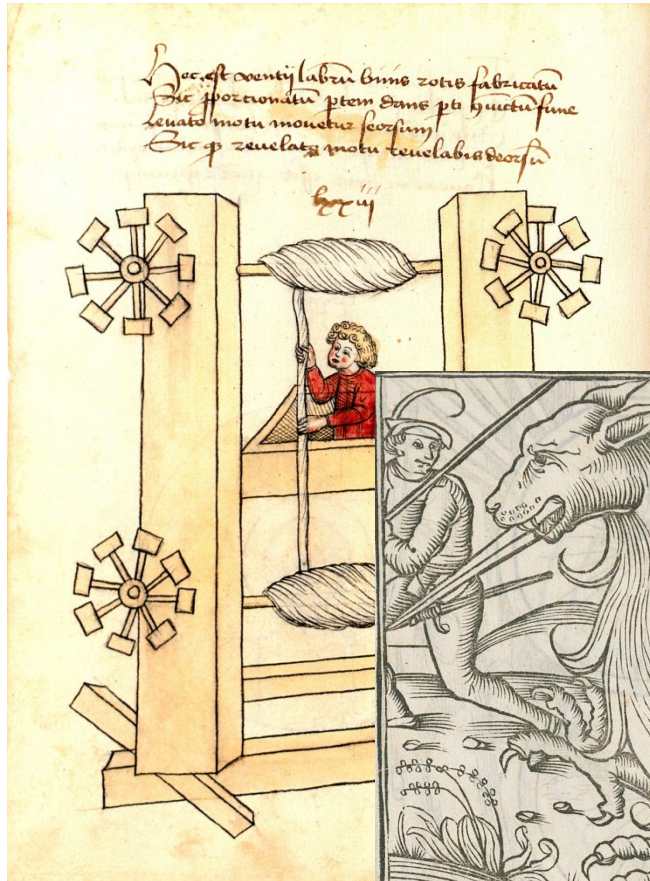 Hec est ventij labrū binis rotis fabricatū
Sic pporcionatū ptem dans pti iunctū fune
Levato motu movetur seorsum
Sic qȝ revelato motu revelabis deorsū
lxxiii